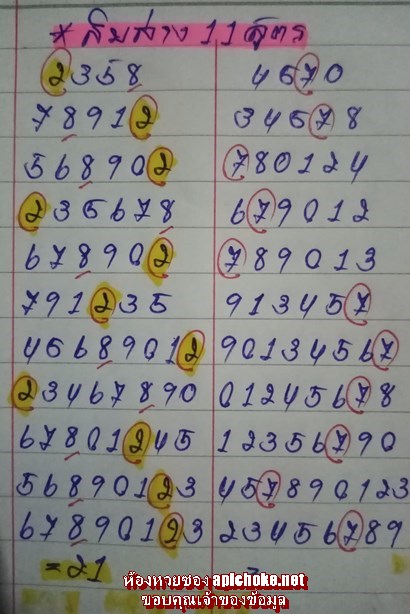 * สิบล่าง 11 สูตร
2358 4570
78912 34578
568902 780124
235678 679012
678902 789013
791235 913457
45689012 90134567
23467890 01245678
67801245 12356790
56890123 457890123
67890123 23456789
=21
ห้องหวยซอง apichoke.net
ขอบคุณเจ้าของข้อมูล